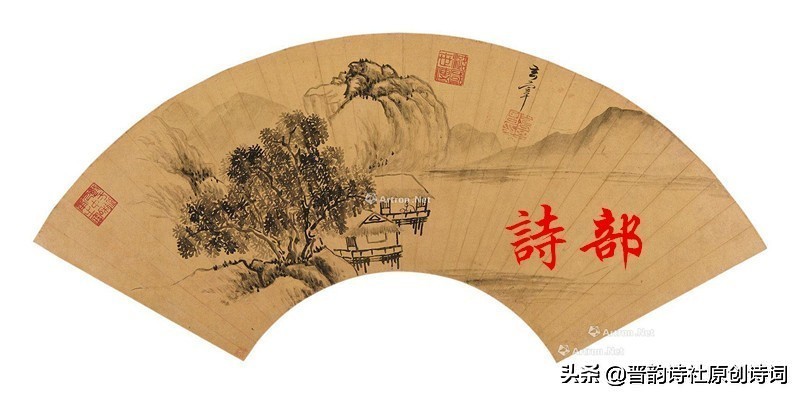 詩部
Artron.Net
Artron.Net
Artron.Net
头条 @晋韵诗社原创诗词